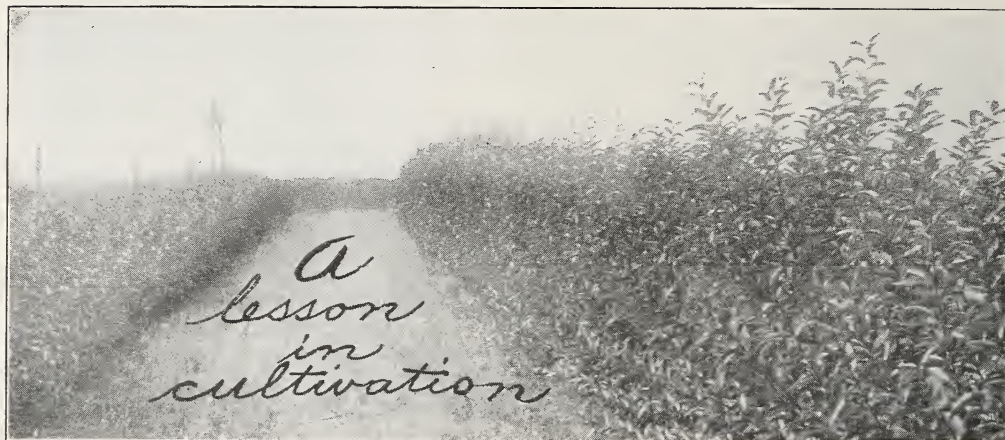 a
lesson
in
cultivation